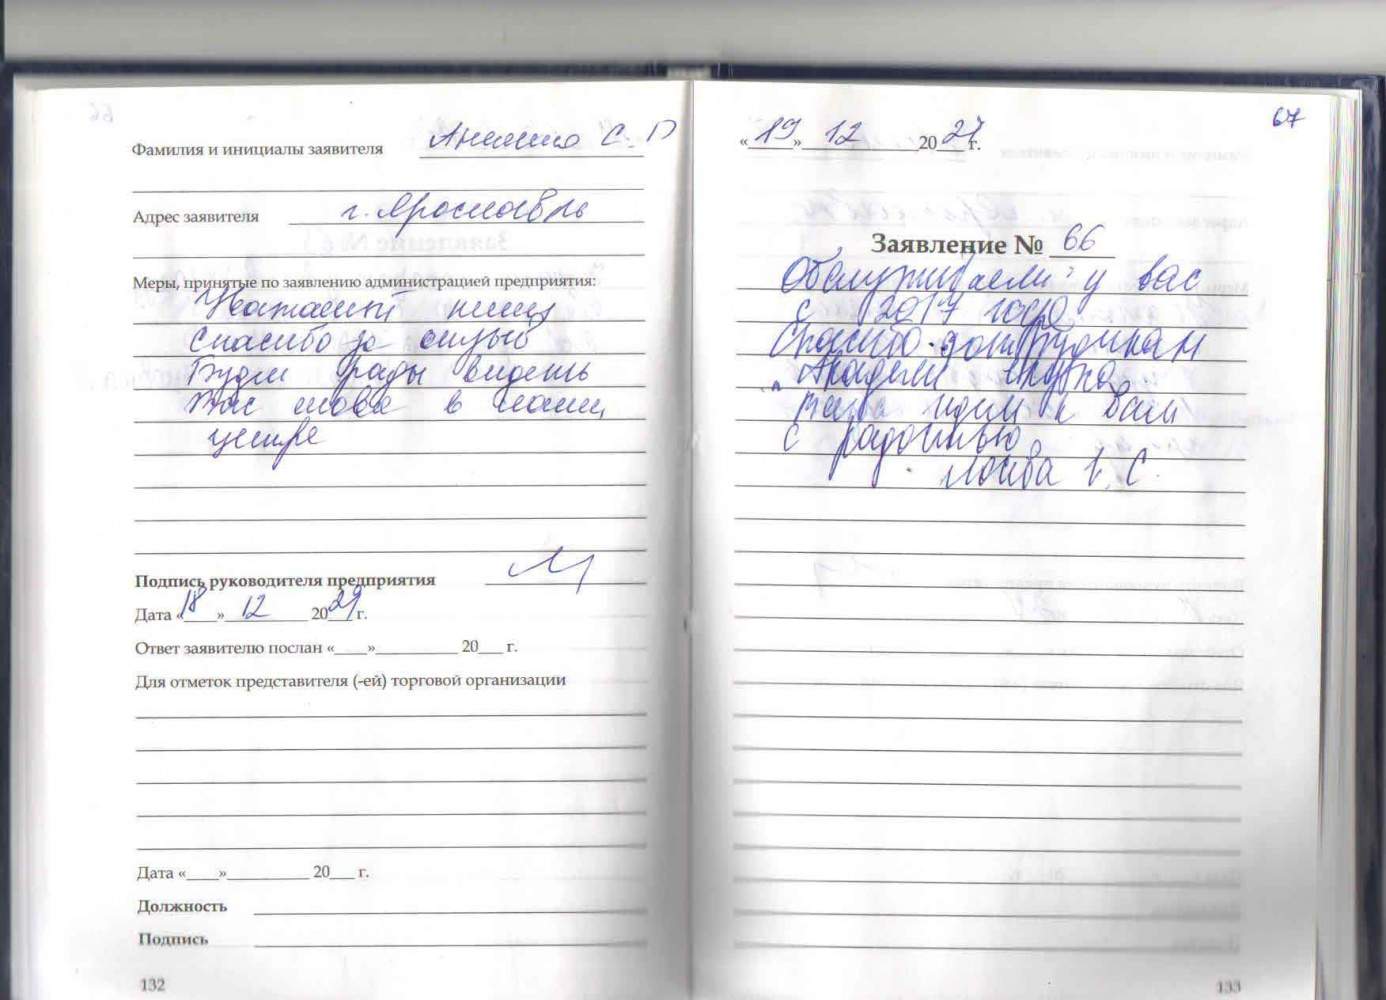 Фамилия и инициалы заявителя С. П
Адрес заявителя г. Ярославль
Меры, принятые по заявлению администрацией предприятия:
Уважаемый
Спасибо за отзыв
Будем рады видеть
Вас снова в нашем
центре
Подпись руководителя предприятия
Дата «18» 12 2021 г.
Ответ заявителю послан «____»__________ 20___ г.
Для отметок представителя (-ей) торговой организации
Дата «____»__________ 20___ г.
Должность
Подпись
132
67
«19» 12 2021 г.
Заявление № 66
Обслуживаемся у вас
с 2017 года
Спасибо сотрудникам
Академии
идем к вам
с радостью
С.
133